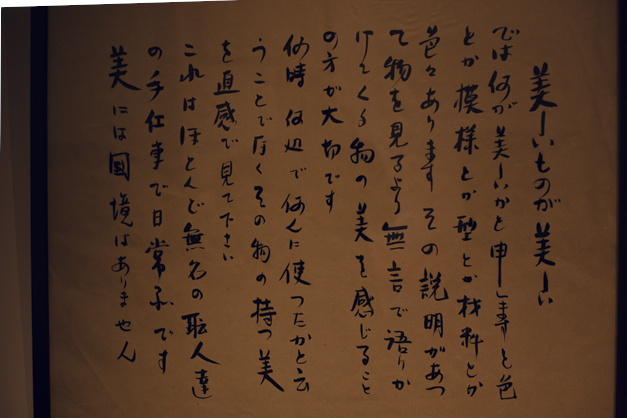 美しいものが美しい
では何が美しいかと申しますと色
とか模様とか型とか材料とか
色々あります その説明があつ
て物を見るより無言で語りか
けてくる物の美を感じること
の方が大切です
何時 何処で 何に使つたかと云
うことでなくその物の持つ美
を直感で見て下さい
これはほとんど無名の職人達
の手仕事で日常品です
美には国境はありません